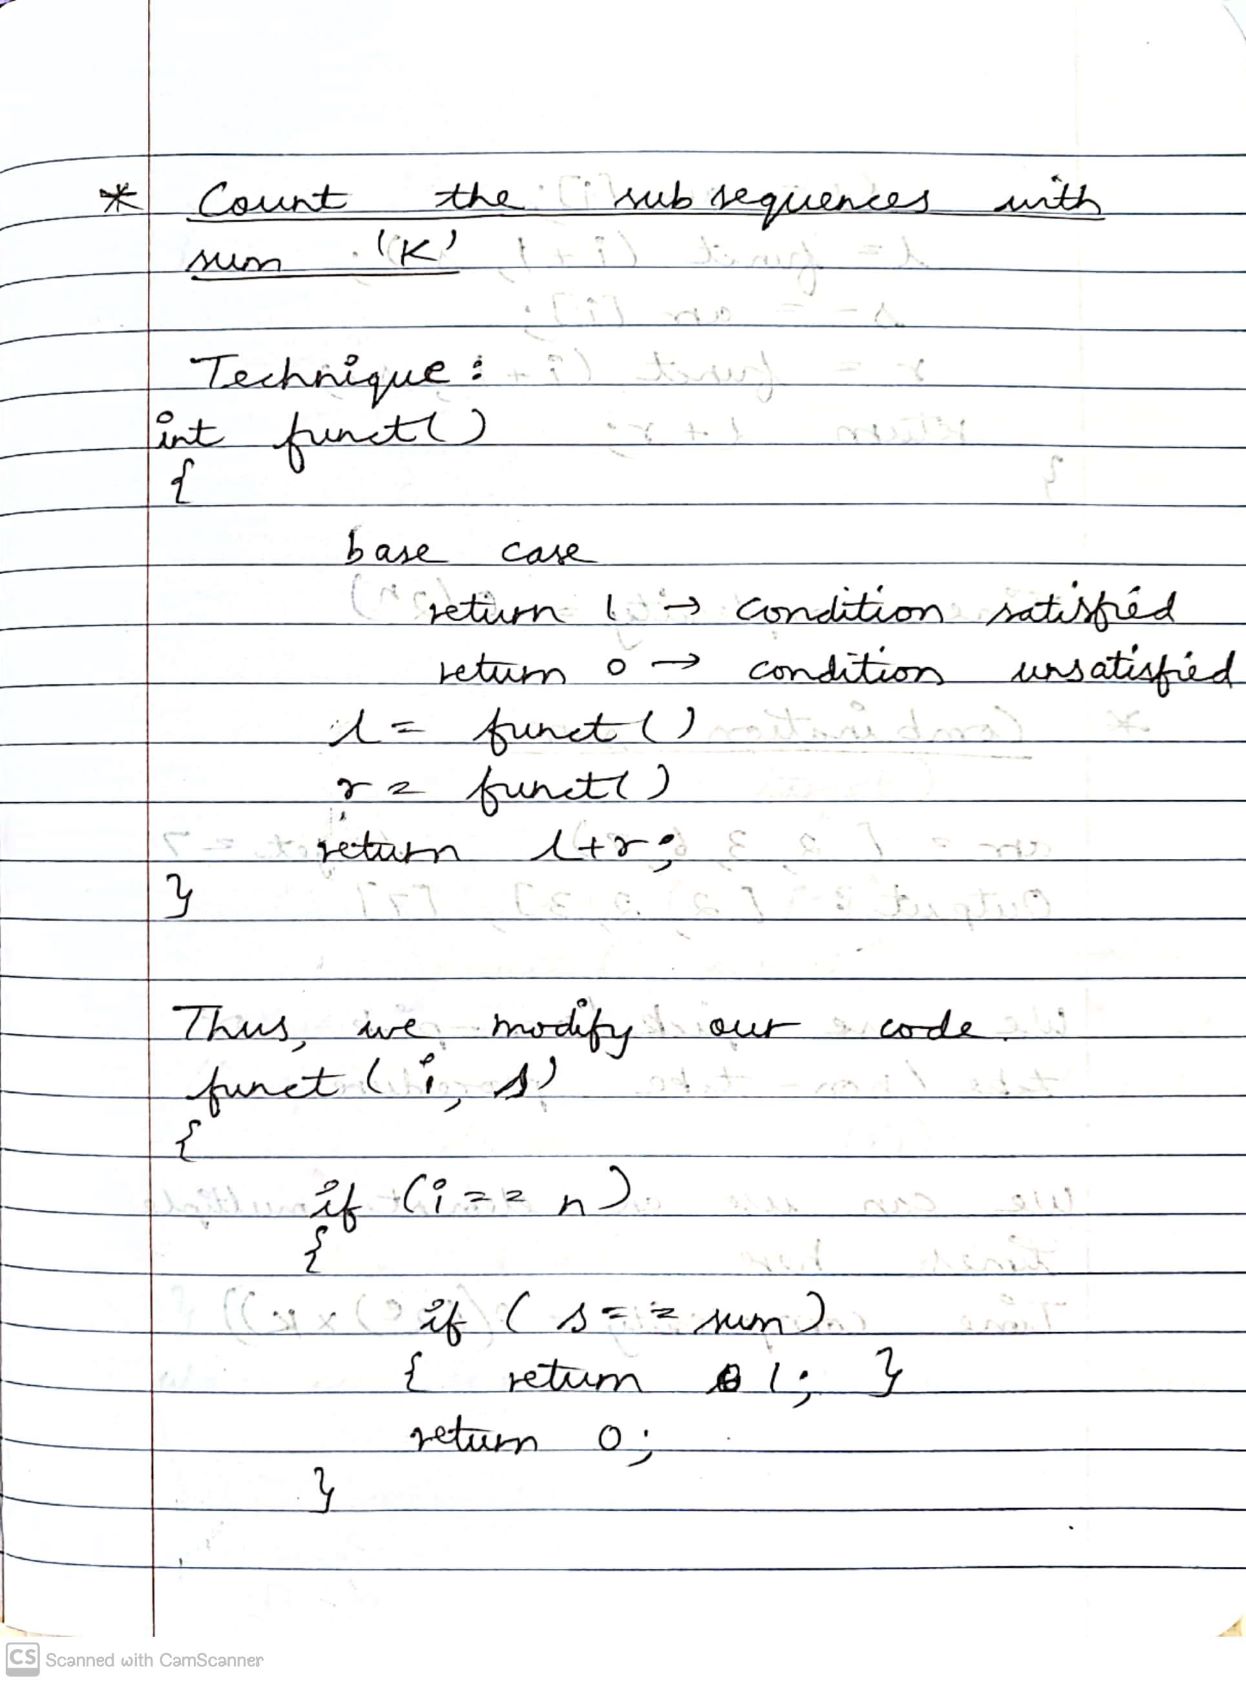 * Count the subsequences with
sum 'K'
Technique :
int funct()
{
base case
return 1 → condition satisfied
return 0 → condition unsatisfied
l = funct()
r = funct()
return l+r;
}
Thus, we modify our code.
funct (i, s)
{
if (i == n)
{
if (s == sum)
{ return 1; }
return 0;
}
CS Scanned with CamScanner